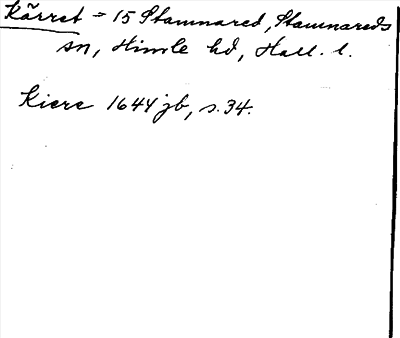 Kärret = 15 Stamnared, Stamnareds
sn, Himle hd, Hall. l.
Kiere 1644 jb, s. 34.